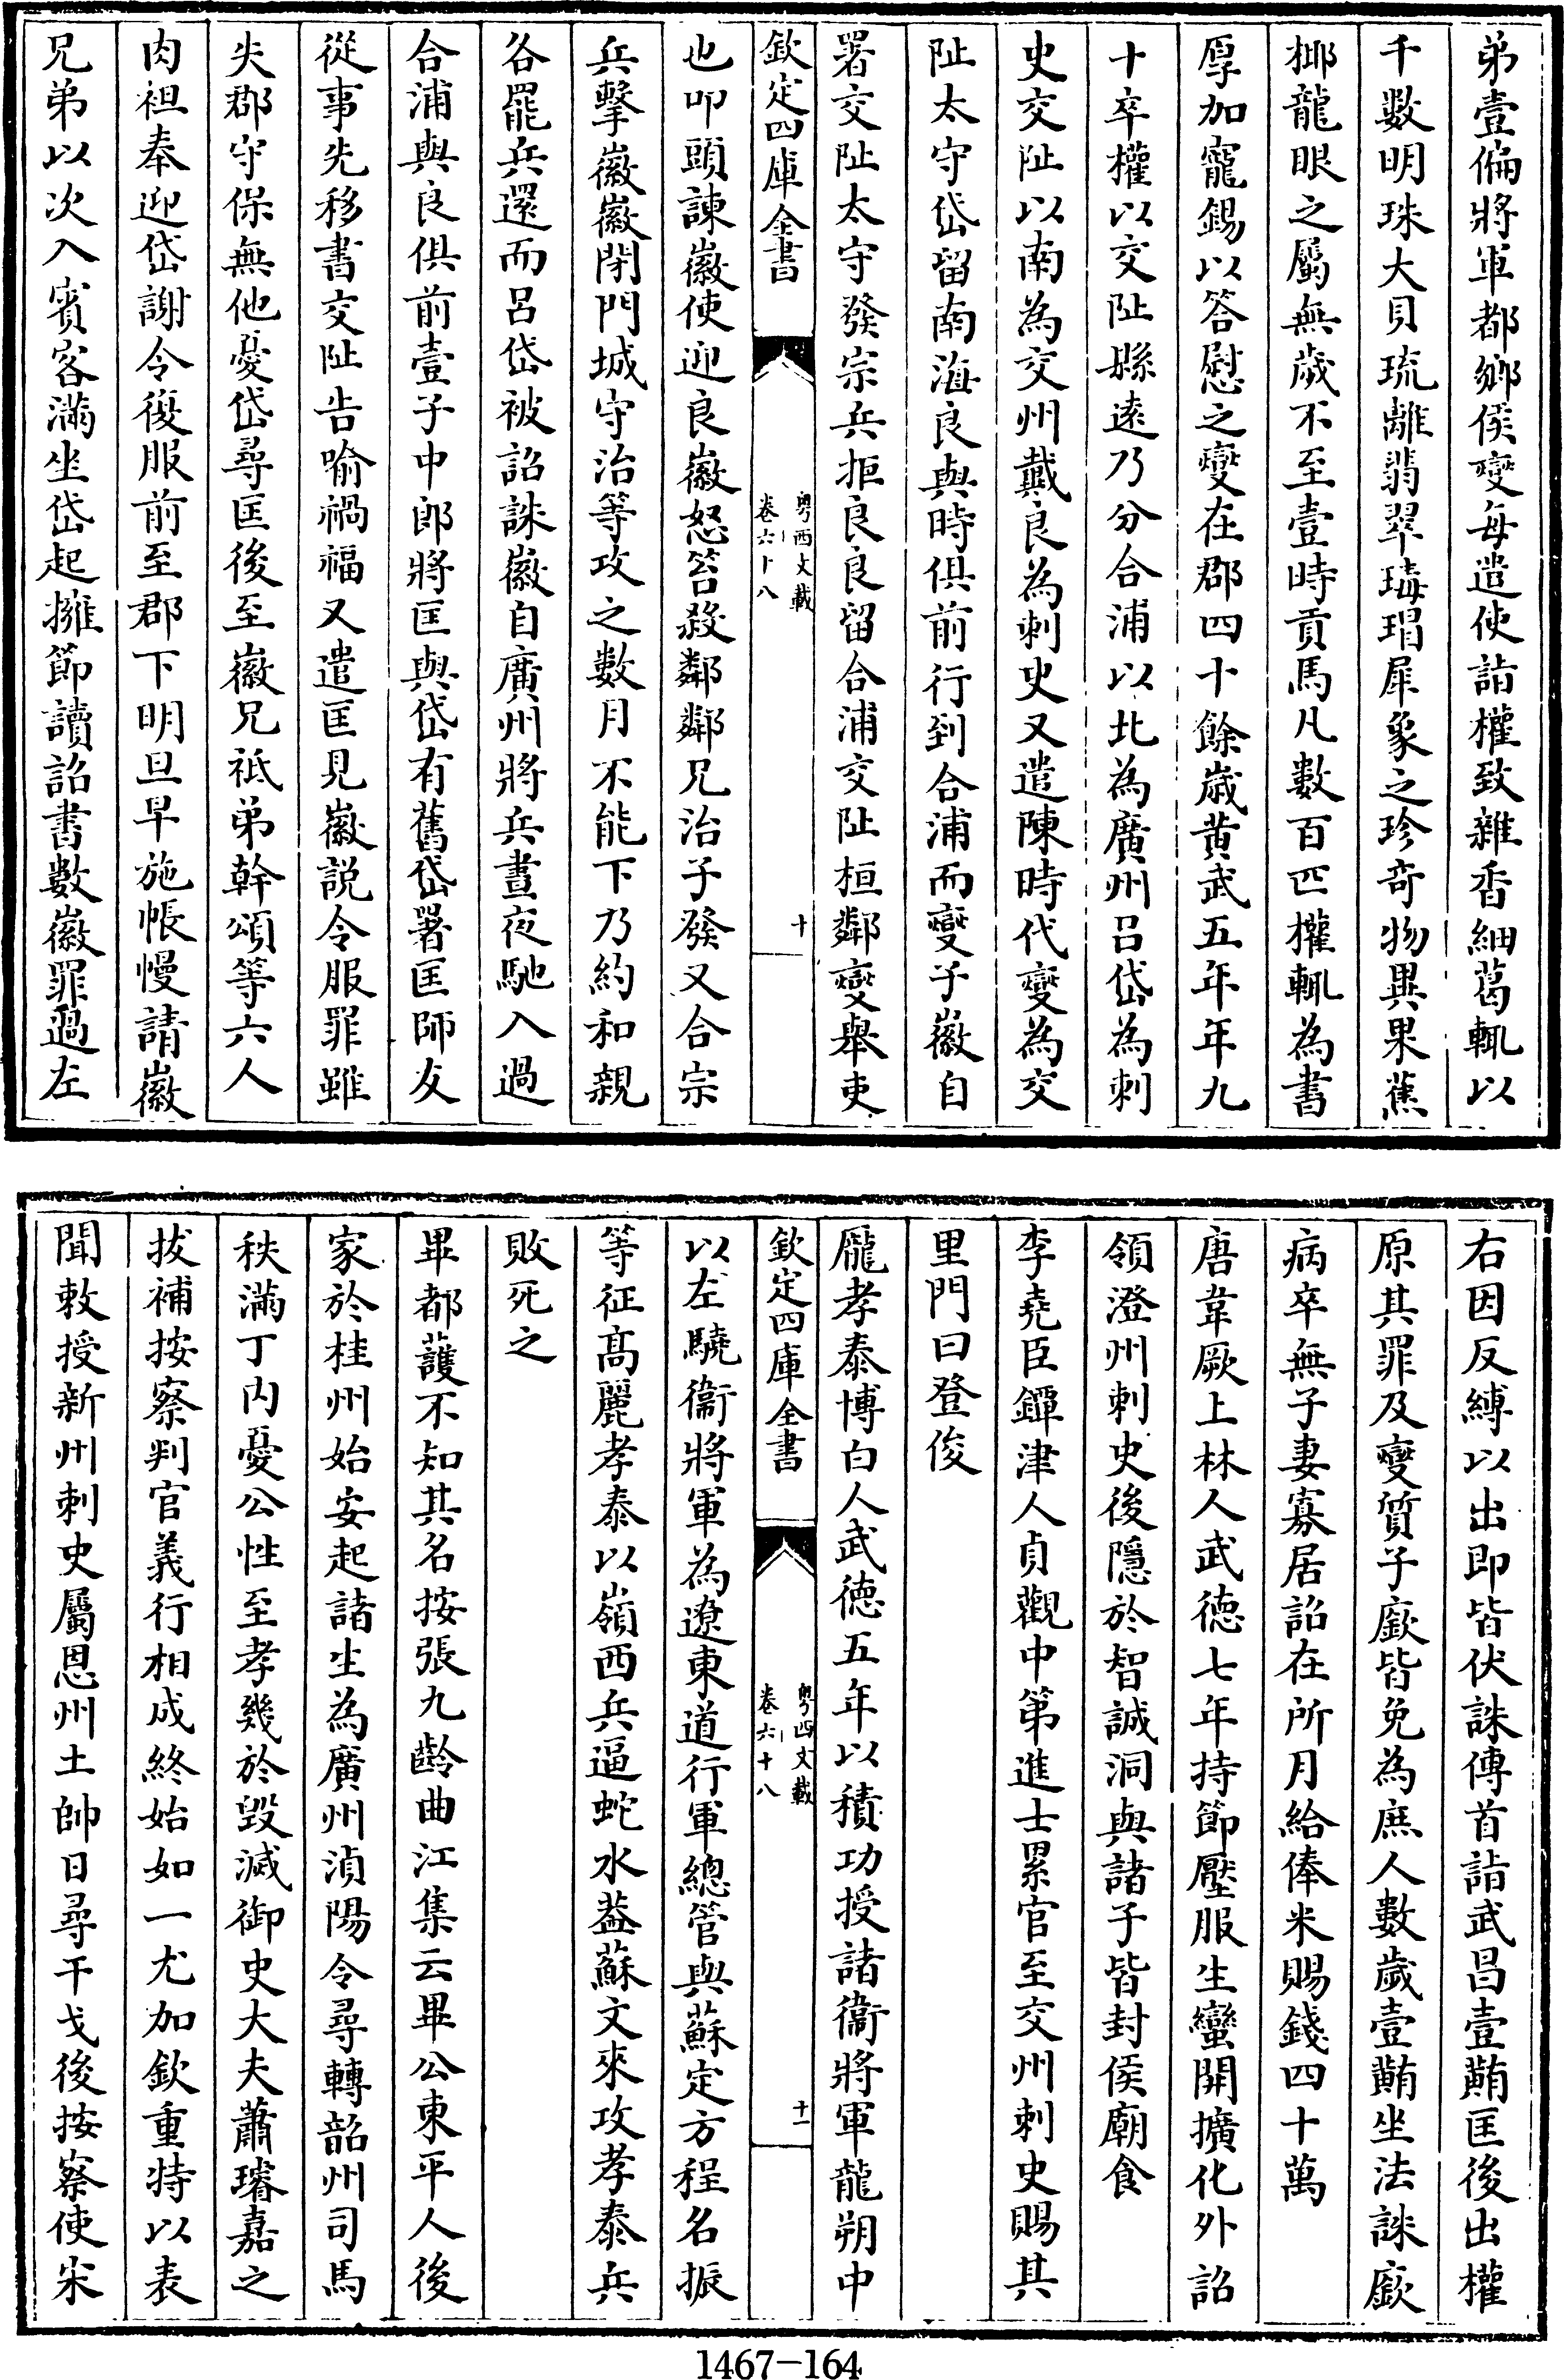 弟壹偏將軍都鄉侯燮每遣使詣權致雜香細葛輒以
千數明珠大貝琉離翡翠瑇瑁犀象之珍奇物異果蕉
揶龍眼之屬無歲不至壹時貢馬凡數百匹權輒為書
厚加寵錫以答慰之燮在郡四十餘歲黄武五年年九
十卒權以交阯縣逺乃分合浦以北為廣州吕岱為刺
史交阯以南為交州戴良為刺史又遣陳時代燮為交
阯太守岱留南海良與時俱前行到合浦而燮子徽自
署交阯太守發宗兵拒良良留合浦交阯桓鄰燮舉吏
欽定四庫全書
粤西文載
卷六十八
十
也叩頭諫徽使迎良徽怒笞殺鄰鄰兄治子發又合宗
兵擊徽徽閉門城守治等攻之數月不能下乃約和親
各罷兵還而吕岱被詔誅徽自廣州將兵晝夜馳入過
合浦與良俱前壹子中郎將匡與岱有舊岱署匡師友
從事先移書交阯告喻禍福又遣匡見徽說令服罪雖
失郡守保無他憂岱尋匡後至徽兄祗弟幹頌等六人
肉袒奉迎岱謝令復服前至郡下明旦早施帳幔請徽
兄弟以次入賓客滿坐岱起擁節讀詔書數徽罪過左
右因反縛以出即皆伏誅傳首詣武昌壹䵋匡後出權
原其罪及燮質子廞皆免為庶人數歲壹䵋坐法誅廞
病卒無子妻寡居詔在所月給俸米賜錢四十萬
唐韋厥上林人武德七年持節壓服生蠻開擴化外詔
領澄州刺史後隱於智誠洞與諸子皆封侯廟食
李堯臣鐔津人貞觀中第進士累官至交州刺史賜其
里門曰登俊
龐孝泰博白人武德五年以積功授諸衞將軍龍朔中
欽定四庫全書
粤西文載
卷六十八
十一
以左驍衞將軍為遼東道行軍總管與蘇定方程名振
等征髙麗孝泰以嶺西兵逼蛇水葢蘇文來攻孝泰兵
敗死之
畢都䕶不知其名按張九齡曲江集云畢公東平人後
家於桂州始安起諸生為廣州湞陽令尋轉韶州司馬
秩滿丁内憂公性至孝幾於毁滅御史大夫蕭璿嘉之
拔補按察判官義行相成終始如一尤加欽重特以表
聞敕授新州刺史屬恩州土帥日尋干戈後按察使宋
1467-164